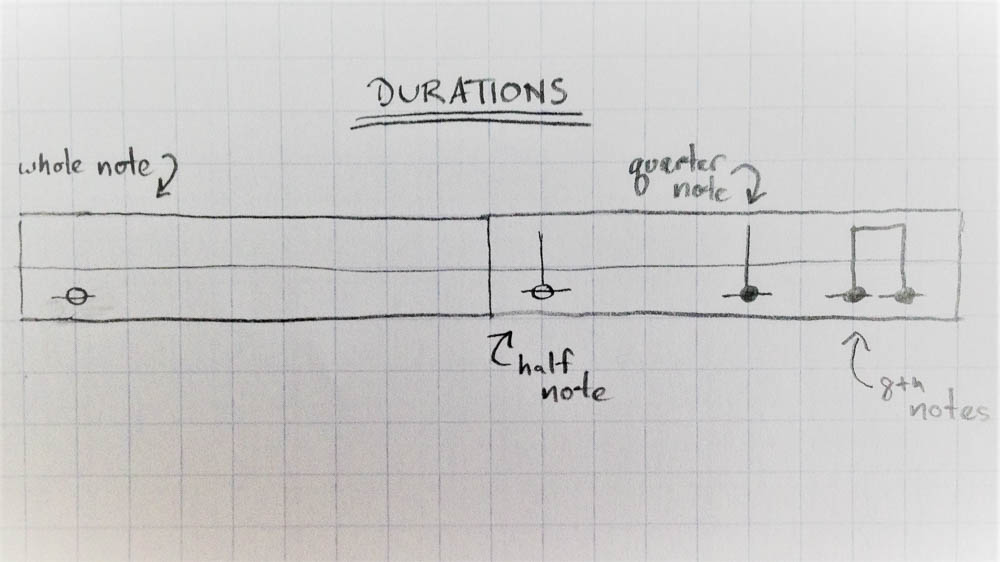 DURATIONS
whole note
quarter
note
half
note
8th
notes